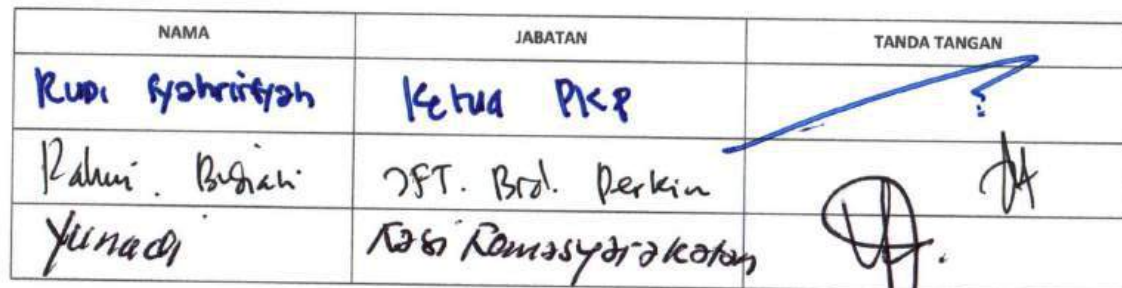 NAMA JABATAN TANDA TANGAN
Rudi Syahriansyah Ketua PKP
Rahmi JFT. Bid. Perkim
Yunadi Kasi Kemasyarakatan